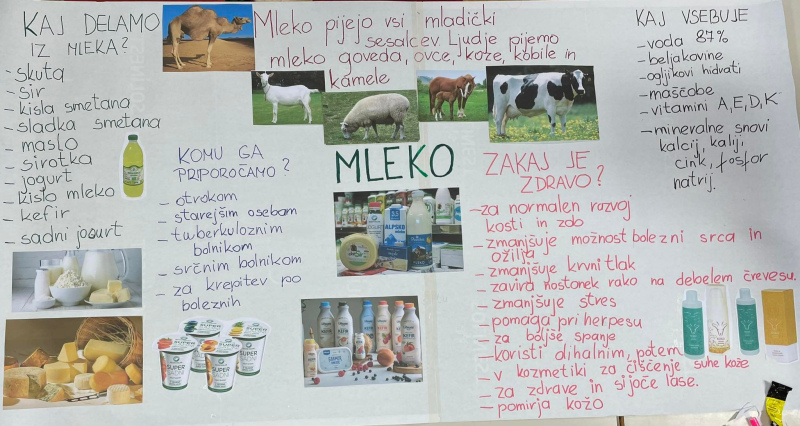 KAJ DELAMO
IZ MLEKA?
- skuta
- sir
- kisla smetana
- sladka smetana
- maslo
- sirotka
- jogurt
- kislo mleko
- kefir
- sadni jogurt
Mleko pijejo vsi mladički
sesalcev Ljudje pijemo
mleko goveda, ovce, koze, kobile in
kamele
KAJ VSEBUJE
- voda 87%
- beljakovine
- ogljikovi hidrati
- maščobe
- vitamini A, E, D, K
- mineralne snovi
kalcij, kalij,
cink, fosfor
natrij.
KOMU GA
PRIPOROČAMO?
- otrokom
- starejšim osebam
- tuberkuloznim
bolnikom
- srčnim bolnikom
- za krepitev po
boleznih
MLEKO
ALPSKO
SUPER
SUPER
SUPER
SUPER
ZAKAJ JE
ZDRAVO?
- za normalen razvoj
kosti in zob
- zmanjšuje možnost bolezni srca in
ožilja
- zmanjšuje krvni tlak
- zavira nastanek raka na debelem črevesu.
- zmanjšuje stres
- pomaga pri herpesu
- za boljše spanje
- koristi dihalnim potem
- v kozmetiki za čiščenje suhe kože
- za zdrave in sijoče lase.
- pomirja kožo